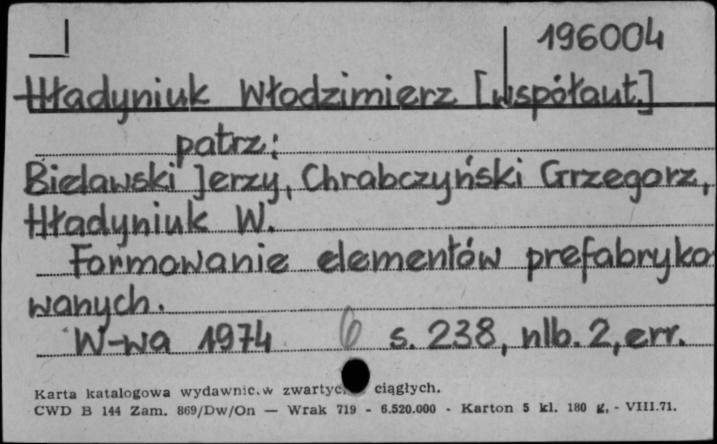 196004
Hładyniuk Włodzimierz [współaut.]
patrz:
Bielawski Jerzy, Chrabczyński Grzegorz,
Hładyniuk W.
Formowanie elementów prefabryko
wanych.
W-wa 1974 6 s. 238, nlb. 2, err.
Karta katalogowa wydawnic.w zwartyc ciągłych.
CWD B 144 Zam. 869/Dw/On — Wrak 719 - 6.520.000 - Karton 5 kl. 180 g, - VIII.71.